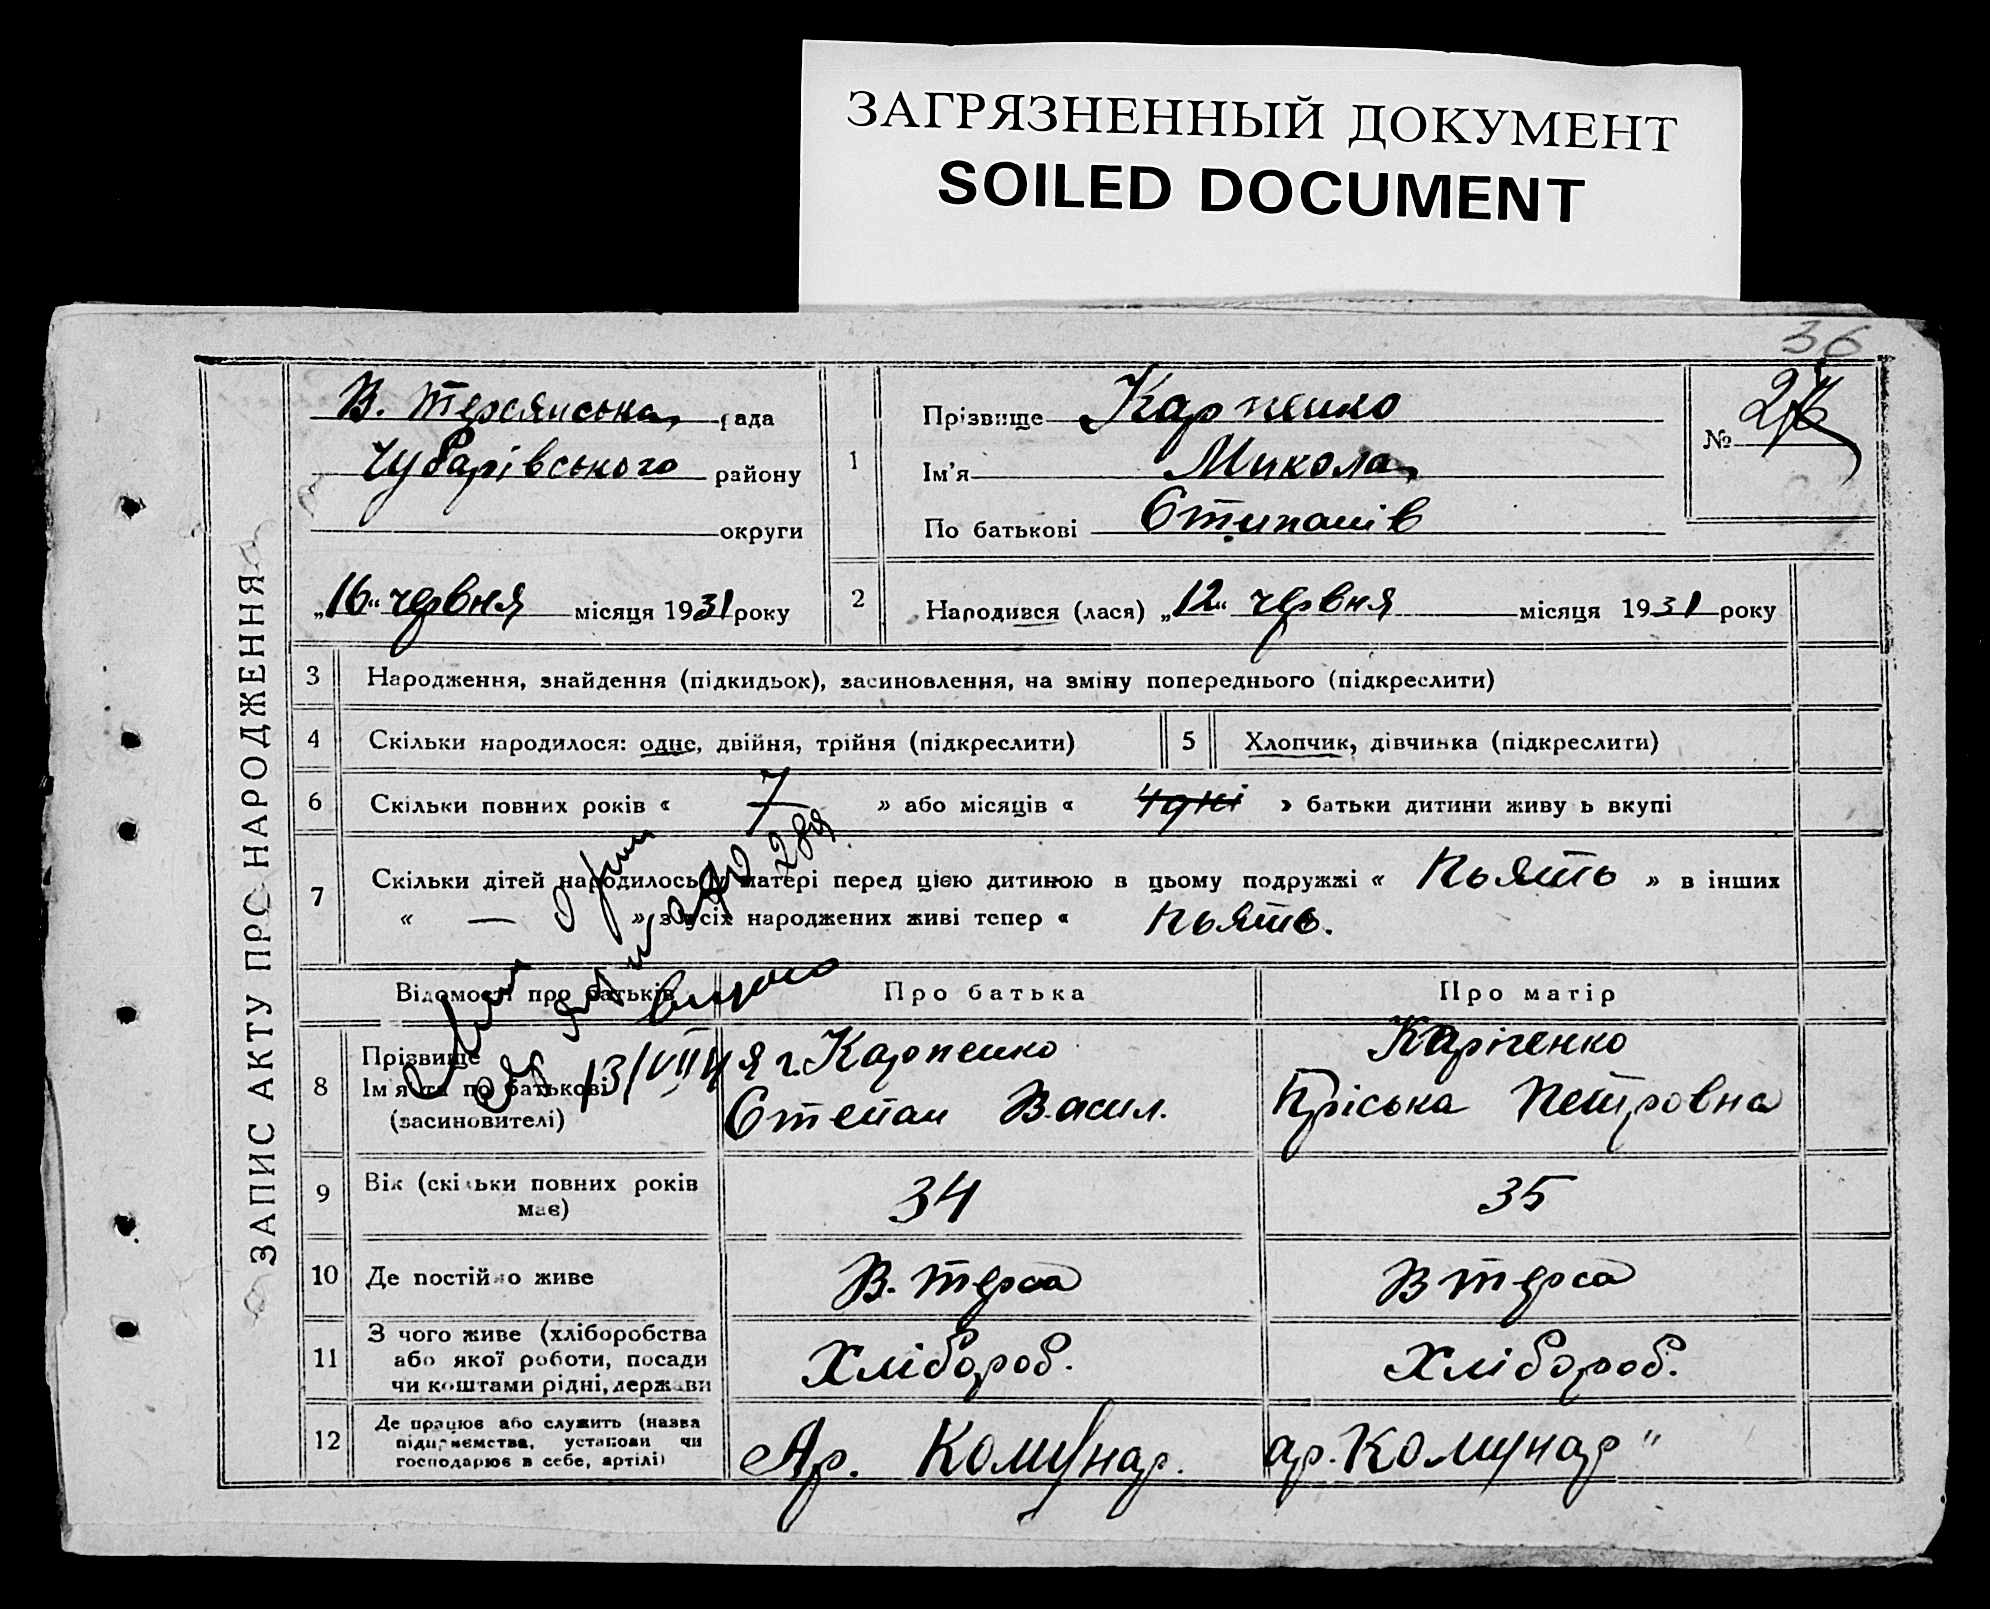 ЗАГРЯЗНЕННЫЙ ДОКУМЕНТ
SOILED DOCUMENT
36
ЗАПИС АКТУ ПРО НАРОДЖЕННЯ
В. Терсянська рада
Чубарівського району
округи
„16“ червня місяця 1931 року
1
Прізвище Карпенко
Ім'я Микола
По батькові Стипанів
№
2
Народився (лася) „12“ червня місяця 1931 року
3 Народження, знайдення (підкидьок), засиновлення, на зміну попереднього (підкреслити)
4 Скільки народилося: одне, двійня, трійня (підкреслити)
5 Хлопчик, дівчинка (підкреслити)
6 Скільки повних років « 7 » або місяців « » батьки дитини живуть вкупі
7 Скільки дітей народилось у матері перед цією дитиною в цьому подружжі « пьять » в інших
« — » з усіх народжених живі тепер « пьять.
Відомості про батьків
Про батька
Про матір
8 Прізвище
Ім'я та по батькові
(засиновителі)
Карпенко
Степан Васил.
Карпенко
Пріська Петровна
9 Вік (скільки повних років
має)
34
35
10 Де постійно живе
В. Терса
В Терса
11 З чого живе (хліборобства
або якої роботи, посади
чи коштами рідні, держави
Хлібороб.
Хлібороб.
12 Де працює або служить (назва
підприємства, установи чи
господарює в себе, артілі)
Ар. Комунар.
ар. Комунар"